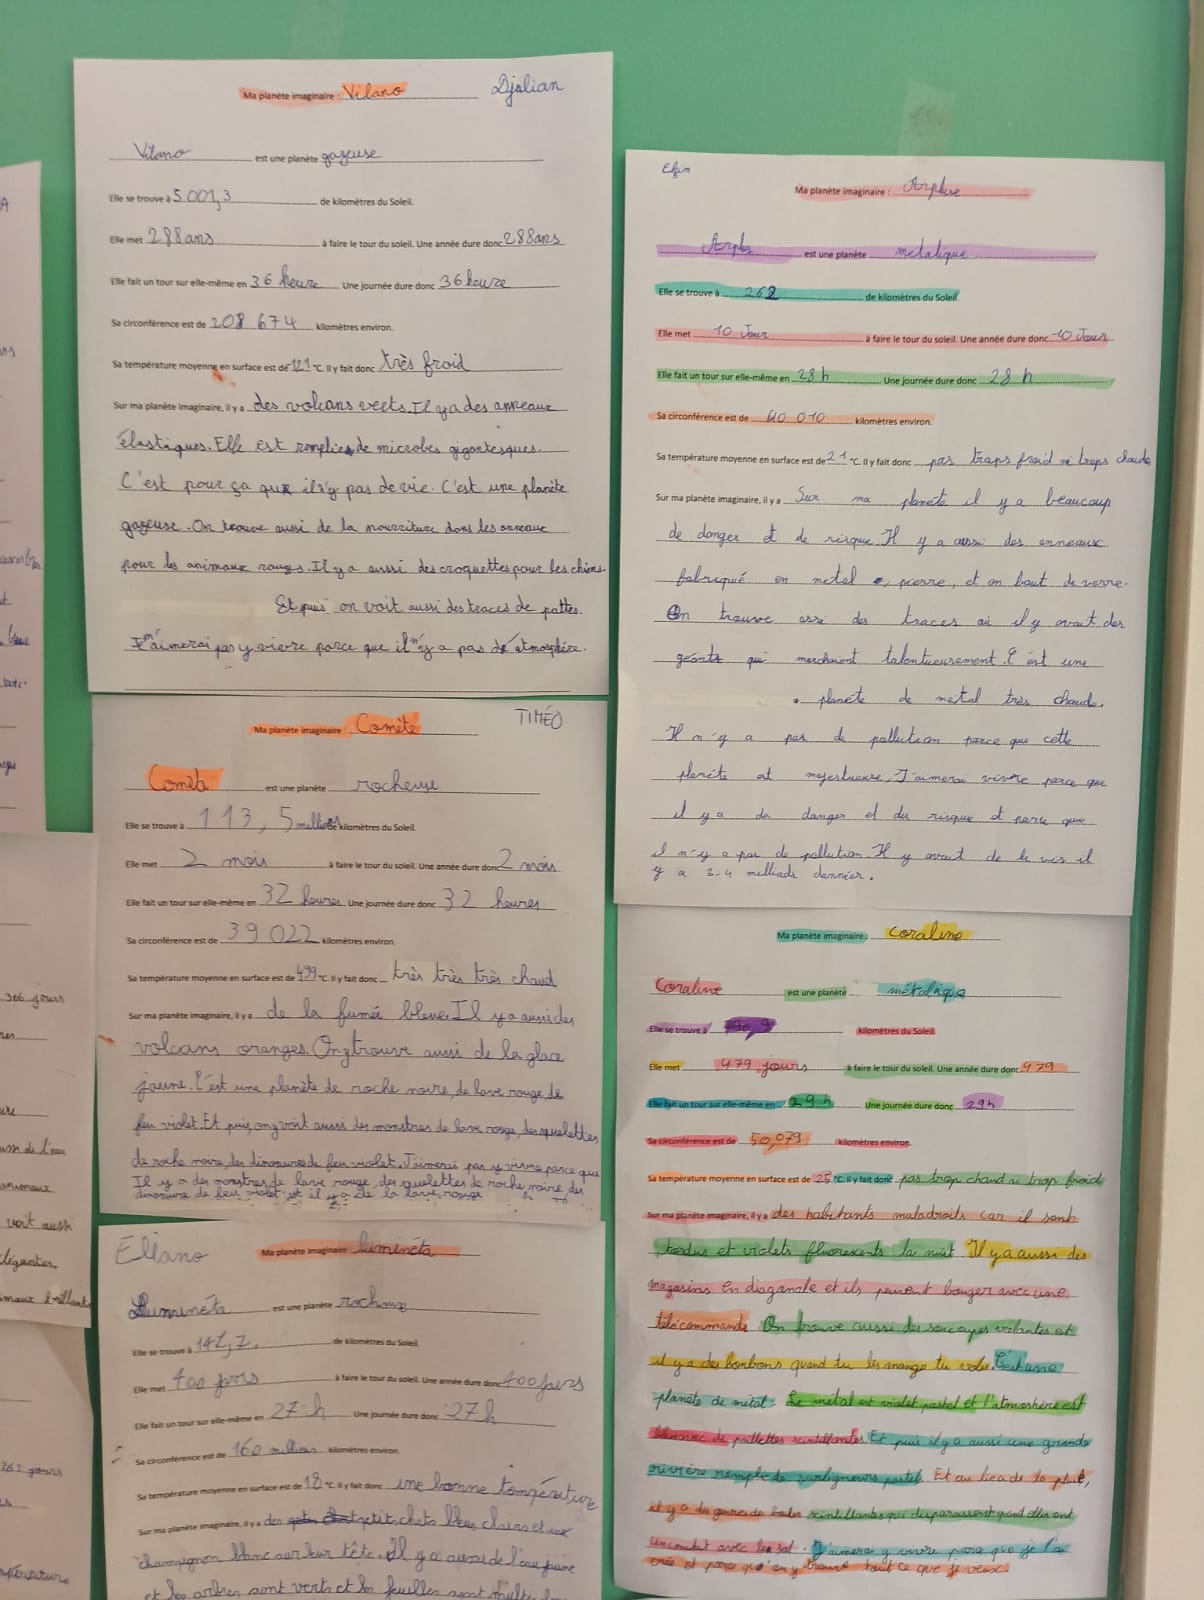 Ma planète imaginaire : Vilano Djslian
Vilano est une planète gazeuse
Elle se trouve à 5 001,3 de kilomètres du Soleil.
Elle met 288ans à faire le tour du soleil. Une année dure donc 288ans
Elle fait un tour sur elle-même en 36 heure Une journée dure donc 36heure
Sa circonférence est de 208 674 kilomètres environ.
Sa température moyenne en surface est de -121 °C. Il y fait donc très froid
Sur ma planète imaginaire, il y a des volcans verts. Il y a des anneaux
élastiques. Elle est remplie de microbes gigantesques.
C'est pour ça que il n'y pas de vie. C'est une planète
gazeuse. On trouve aussi de la nourriture dans les anneaux
pour les animaux rouges. Il y a aussi des croquettes pour les chiens.
Et puis on voit aussi des traces de pattes.
Je n'aimerai pas y vivre parce que il n'y a pas d'atmosphère.
Ma planète imaginaire : Comète TIMÉO
Comèta est une planète rocheuse
Elle se trouve à 113, 5 millions de kilomètres du Soleil.
Elle met 2 mois à faire le tour du soleil. Une année dure donc 2 mois
Elle fait un tour sur elle-même en 32 heures Une journée dure donc 32 heures
Sa circonférence est de 39 022 kilomètres environ.
Sa température moyenne en surface est de 499 °C. Il y fait donc très très très chaud
Sur ma planète imaginaire, il y a de la fumée bleue. Il y a aussi des
volcans oranges. On y trouve aussi de la glace
jaune. C'est une planète de roche noire, de lave rouge, de
feu violet. Et puis, on y voit aussi des monstres de lave rouge, des quelettes
de roche noire, des dinosaures de feu violet. J'aimerai pas y vivre parce que
Il y a des monstres de lave rouge, des quelettes de roche noire, des
dinosaure de feu violet et il y a de la lave rouge
Eliano Ma planète imaginaire : Lumineta
Lumineta est une planète rocheuse
Elle se trouve à de kilomètres du Soleil.
Elle met 400 jours à faire le tour du soleil. Une année dure donc 400 jours
Elle fait un tour sur elle-même en 27 h Une journée dure donc 27h
Sa circonférence est de 160 millions kilomètres environ.
Sa température moyenne en surface est de 18 °C. Il y fait donc une bonne température
Sur ma planète imaginaire, il y a des petits chats bleus clairs et un
champignon blanc sur leur tête. Il y a aussi de l'eau jaune
et les arbres sont verts et les feuilles sont
Efin
Ma planète imaginaire : Arpluse
est une planète metalique
Elle se trouve à 262 de kilomètres du Soleil.
Elle met 10 Jour à faire le tour du soleil. Une année dure donc 10 Jours
Elle fait un tour sur elle-même en 28 h Une journée dure donc 28 h
Sa circonférence est de 40 010 kilomètres environ.
Sa température moyenne en surface est de 21 °C. Il y fait donc pas traps froid ni traps chaude
Sur ma planète imaginaire, il y a Sur ma planète il y a beaucoup
de danger et de risque. Il y a aussi des anneaux
fabriqué en metal , pierre, et en bout de verre.
On trouve assi des traces où il y avait des
géants qui marchaient talentueusement. C'est une
planète de métal très chaude.
Il n'y a pas de pollution parce que cette
planète et majestueuse. J'aimerai vivre parce que
il y a du danger et du risque et parce que
il n'y a pas de pollution. Il y avait de la vie il
y a 3-4 milliads dannéer.
Ma planète imaginaire : Coraline
Coraline est une planète métalique
Elle se trouve à kilomètres du Soleil
Elle met 479 jours à faire le tour du soleil. Une année dure donc 479
Elle fait un tour sur elle-même en 29 h Une journée dure donc 29h
Sa circonférence est de 50,079 kilomètres environ.
Sa température moyenne en surface est de 25 °C. Il y fait donc pas trop chaud ni trop froid
Sur ma planète imaginaire, il y a des habitants maladroits car il sont
tordus et violets fluorescents la nuit. Il y a aussi des
magasins en diagonale et ils peuvent bouger avec une
télécommande. On trouve aussi des soucoupes volantes et
il y a des bonbons quand tu les mange tu voles. C'est une
planète de métal. Le métal est violet pastel et l'atmosphère est
avec de paillettes scintillantes. Et puis il y a aussi une grande
rivière remplie de surligneurs pastels. Et au lieu de la pluie,
il y a des de bulles scintillantes qui disparaissent quand elles ont
un contact avec le sol. J'aimerai y vivre parce que je l'ai
créé et parce qu'on y trouve tout ce que je veux.
366 jours
aussi de l'eau
animaux
voit aussi
élégantes.
365 jours